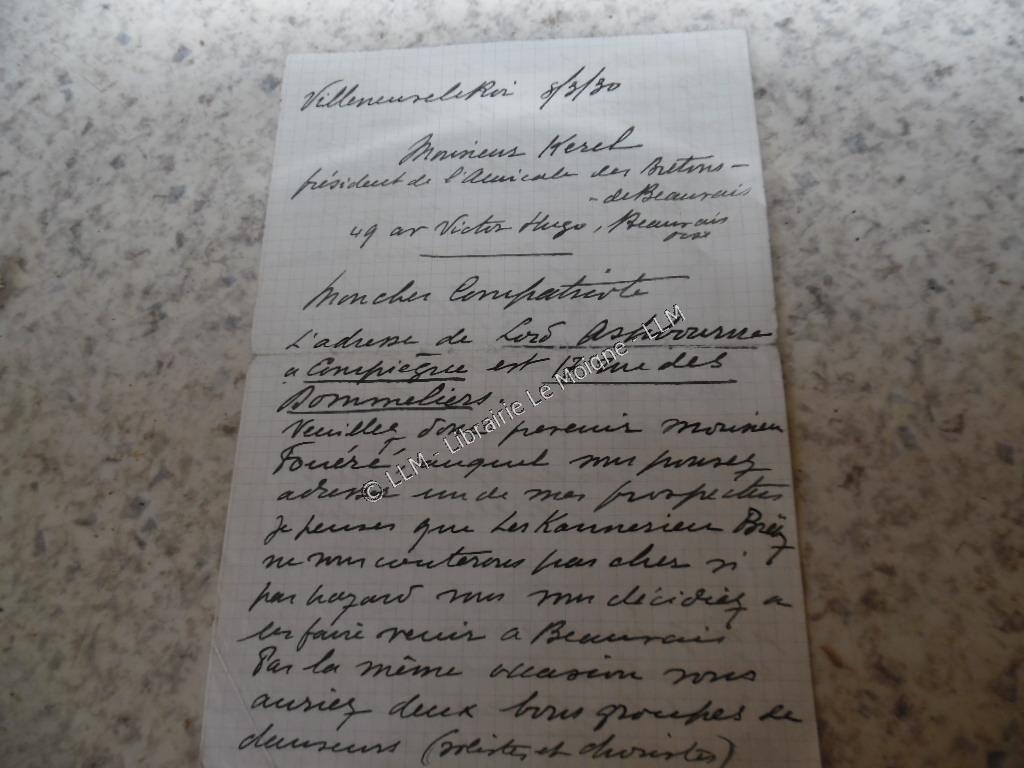 Villeneuveleroi 8/3/30
Monsieur Kerel
président de l'Amicale des Bretons -
- de Beauvais
49 av Victor Hugo, Beauvais
oise
Moncher Compatriote
L'adresse de Lord Ashbourne
a Compiègne est rue des
Bommeliers.
Veuillez donc prevenir monsieur
Fouéré auquel vous pouvez
adresser un de mes prospectus
Je penses que Les Kannerien Breiz
ne vous couterons pas cher si
par hazard vous vous décidiez a
les faire venir a Beauvais
Par la même occasion vous
auriez deux bons groupes de
danseurs (solistes et choristes)
© LLM - Librairie Le Moigne - LLM